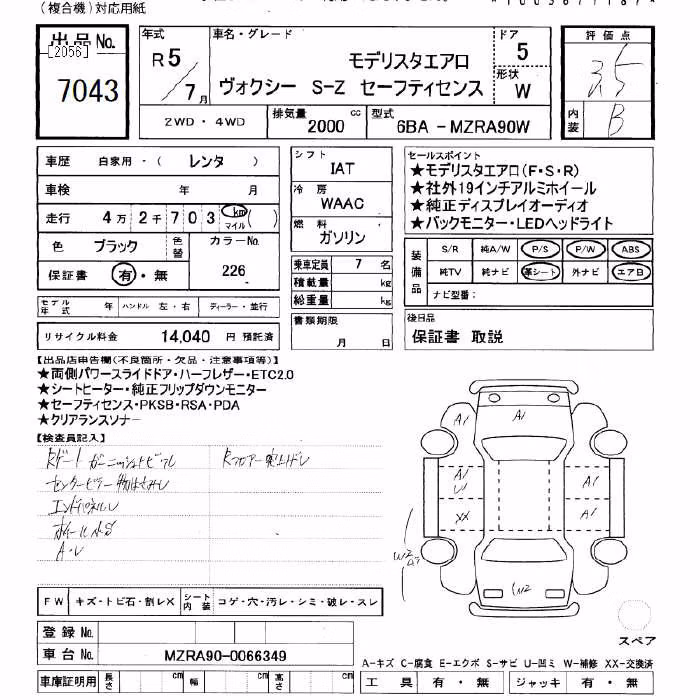 （複合機）対応用紙
出品No.
[2056]
7043
年式
R5/7月
車名・グレード
モデリスタエアロ
ヴォクシー S-Z セーフティセンス
ドア
5
形状
W
評価点
3.5
内装
B
2WD・4WD
排気量 2000 cc
型式 6BA-MZRA90W
車歴 自家用・（ レンタ ）
車検 年 月
走行 4万2千703 km マイル（ ）
色 ブラック 色替 カラーNo. 226
保証書 有・無
モデル年式 年 ハンドル 左・右 ディーラー・並行
リサイクル料金 14,040 円 預託済
シフト IAT
冷房 WAAC
燃料 ガソリン
乗車定員 7 名
積載量 kg
総重量 kg
書類期限 月 日
セールスポイント
★モデリスタエアロ(F・S・R)
★社外19インチアルミホイール
★純正ディスプレイオーディオ
★バックモニター・LEDヘッドライト
装備品
S/R 純A/W P/S P/W ABS
純TV 純ナビ 革シート 外ナビ エアB
ナビ型番：
後日品
保証書 取説
【出品店申告欄(不良箇所・欠品・注意事項等)】
★両側パワースライドドア・ハーフレザー・ETC2.0
★シートヒーター・純正フリップダウンモニター
★セーフティセンス・PKSB・RSA・PDA
★クリアランスソナー
【検査員記入】
エンドパネルレ
A・レ
A1
A1
A1
A1
U1
A1
XX
A1
W2
W2
FW キズ・トビ石・割レX シート内装 コゲ・穴・汚レ・シミ・破レ・スレ
登録No.
車台No. MZRA90-0066349
車庫証明用 長さ cm 幅 cm 高さ cm
スペア
A-キズ C-腐食 E-エクボ S-サビ U-凹ミ W-補修 XX-交換済
工具 有・無 ジャッキ 有・無